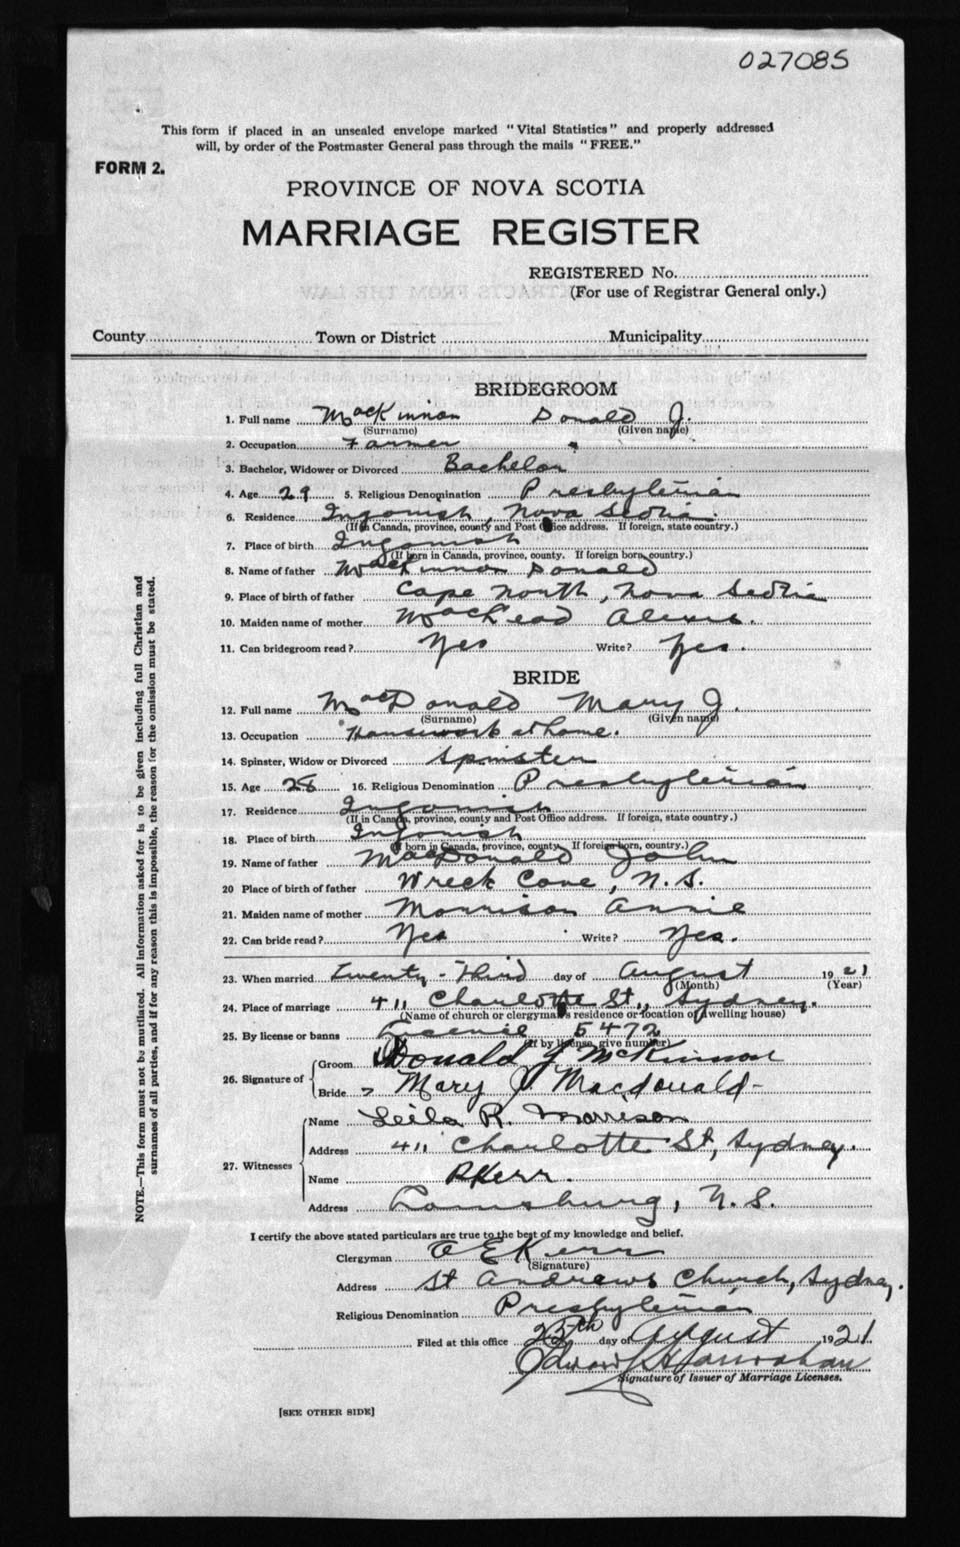 027085
This form if placed in an unsealed envelope marked "Vital Statistics" and properly addressed
will, by order of the Postmaster General pass through the mails "FREE."
FORM 2.
PROVINCE OF NOVA SCOTIA
MARRIAGE REGISTER
REGISTERED No.
(For use of Registrar General only.)
County Town or District Municipality
BRIDEGROOM
1. Full name MacKinnon Donald J.
(Surname) (Given name)
2. Occupation Farmer
3. Bachelor, Widower or Divorced Bachelor
4. Age 29 5. Religious Denomination Presbyterian
6. Residence Ingonish, Nova Scotia
(If in Canada, province, county and Post Office address. If foreign, state country.)
7. Place of birth Ingonish
(If born in Canada, province, county. If foreign born, country.)
8. Name of father MacKinnon Donald
9. Place of birth of father Cape North, Nova Scotia
10. Maiden name of mother MacLeod
11. Can bridegroom read? Yes Write? Yes.
BRIDE
12. Full name MacDonald Mary J.
(Surname) (Given name)
13. Occupation Housework at home.
14. Spinster, Widow or Divorced Spinster
15. Age 28 16. Religious Denomination Presbyterian
17. Residence Ingonish
(If in Canada, province, county and Post Office address. If foreign, state country.)
18. Place of birth Ingonish
(If born in Canada, province, county. If foreign-born, country.)
19. Name of father MacDonald John
20 Place of birth of father Wreck Cove, N.S.
21. Maiden name of mother Morrison Annie
22. Can bride read? Yes Write? Yes.
23. When married Twenty-Third day of August 1921
(Month) (Year)
24. Place of marriage 411 Charlotte St., Sydney.
(Name of church or clergyman's residence or location of dwelling house)
25. By license or banns License 5472
(If by license, give number)
26. Signature of Groom Donald J McKinnon
Bride Mary J Macdonald
27. Witnesses Name Leila R. Morrison
Address 411 Charlotte St, Sydney.
Name Kerr.
Address Louisburg, N.S.
I certify the above stated particulars are true to the best of my knowledge and belief.
Clergyman Kerr
(Signature)
Address St Andrews Church, Sydney.
Religious Denomination Presbyterian
Filed at this office 25th day of August 1921
Edward
Signature of Issuer of Marriage Licenses.
[SEE OTHER SIDE]
NOTE.—This form must not be mutilated. All information asked for is to be given including full Christian and
surnames of all parties, and if for any reason this is impossible, the reason for the omission must be stated.